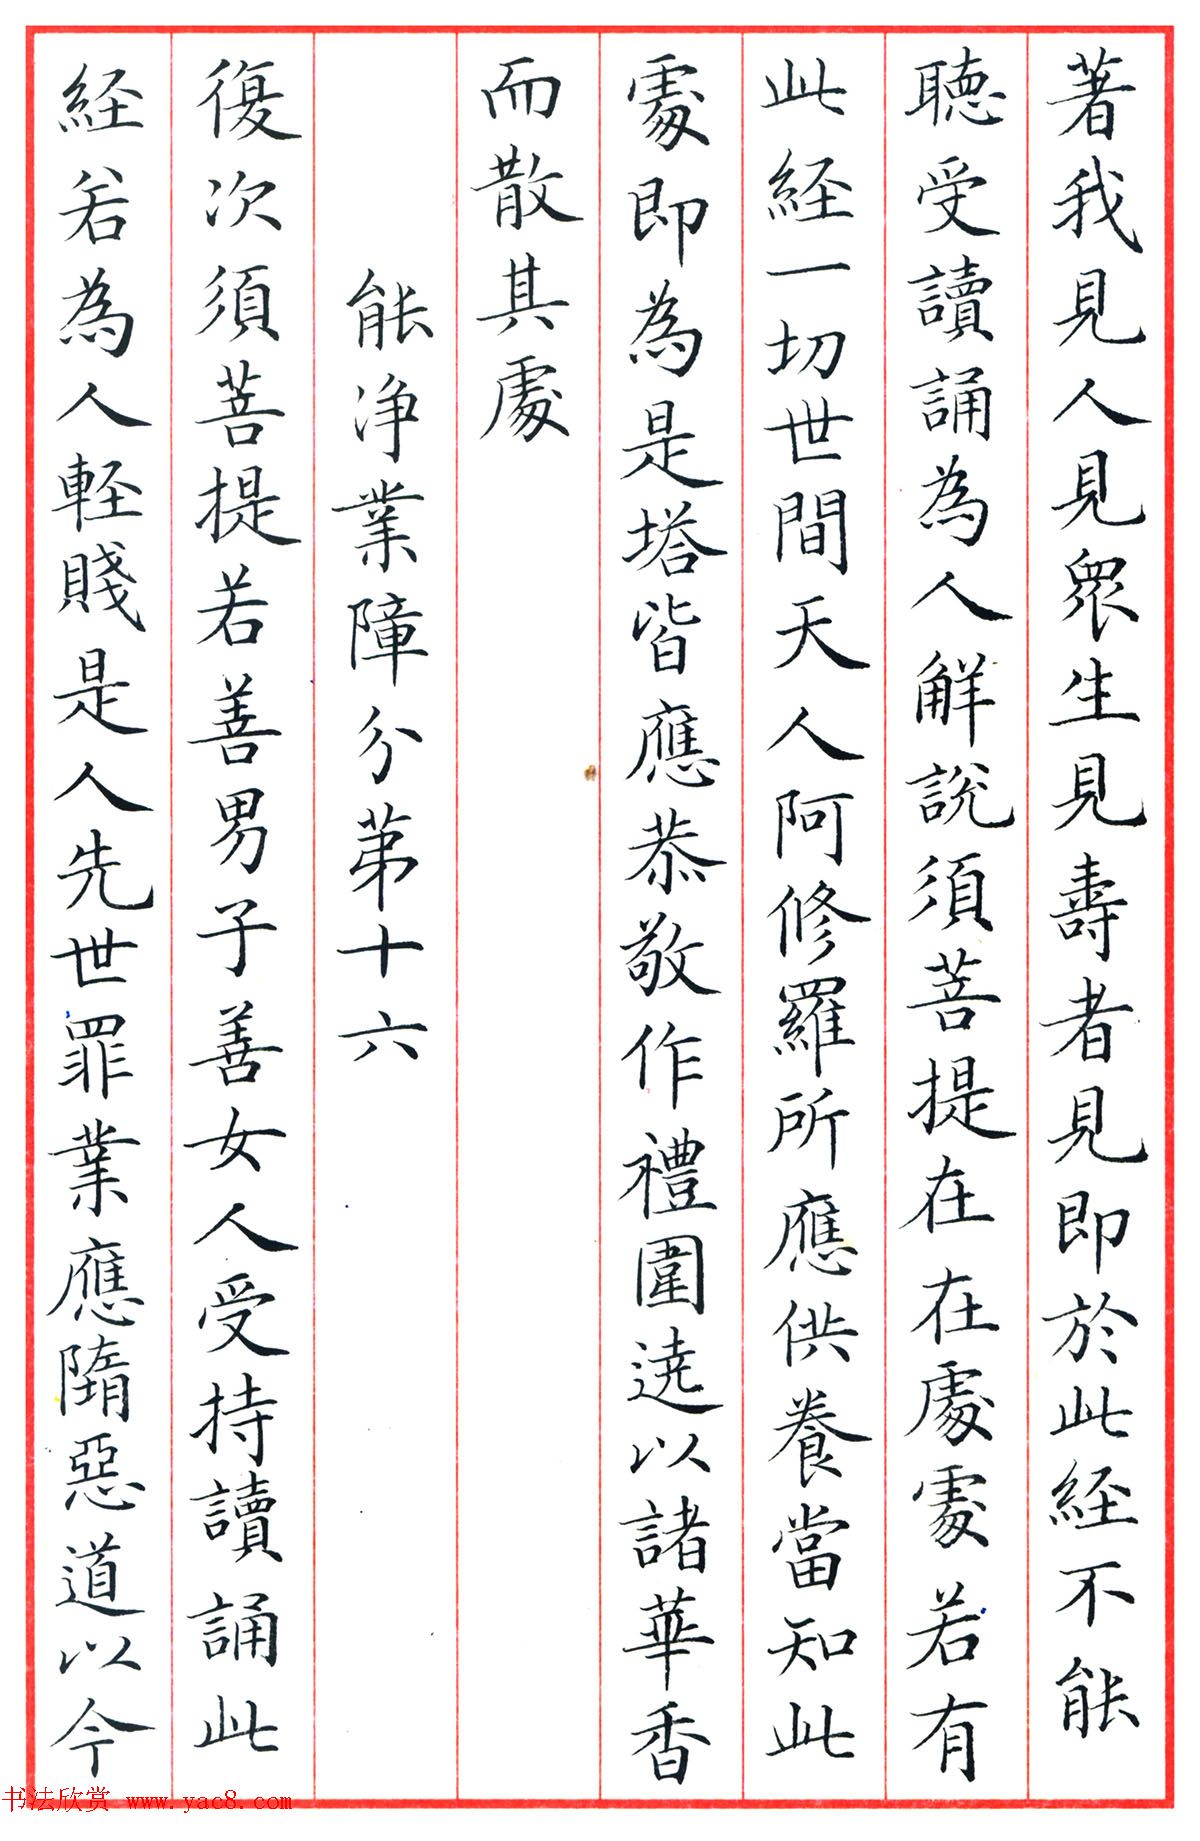 著我見人見眾生見壽者見即於此経不能
聴受讀誦為人解說須菩提在在處處若有
此経一切世間天人阿修羅所應供養當知此
處即為是塔皆應恭敬作禮圍遶以諸華香
而散其處
能净業障分苐十六
復次須菩提若善男子善女人受持讀誦此
経若為人軽賤是人先世罪業應隋惡道以今
书法欣赏 www.yac8.com